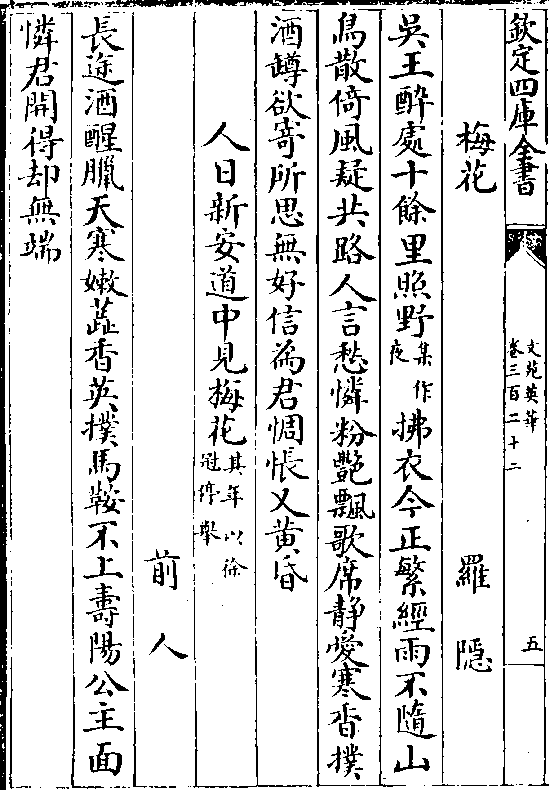 欽定四庫全書
文苑英華
卷三百二十二
五
梅花 羅隱
吳王醉處十餘里照野集作夜拂衣今正繁經雨不隨山
鳥散倚風疑共路人言愁憐粉艷飄歌席静愛寒香撲
酒罇欲寄所思無好信為君惆悵又黄昏
人日新安道中見梅花其年以徐冠停舉
前人
長途酒醒臘天寒嫩蘂香英撲馬鞍不上壽陽公主面
憐君開得却無端